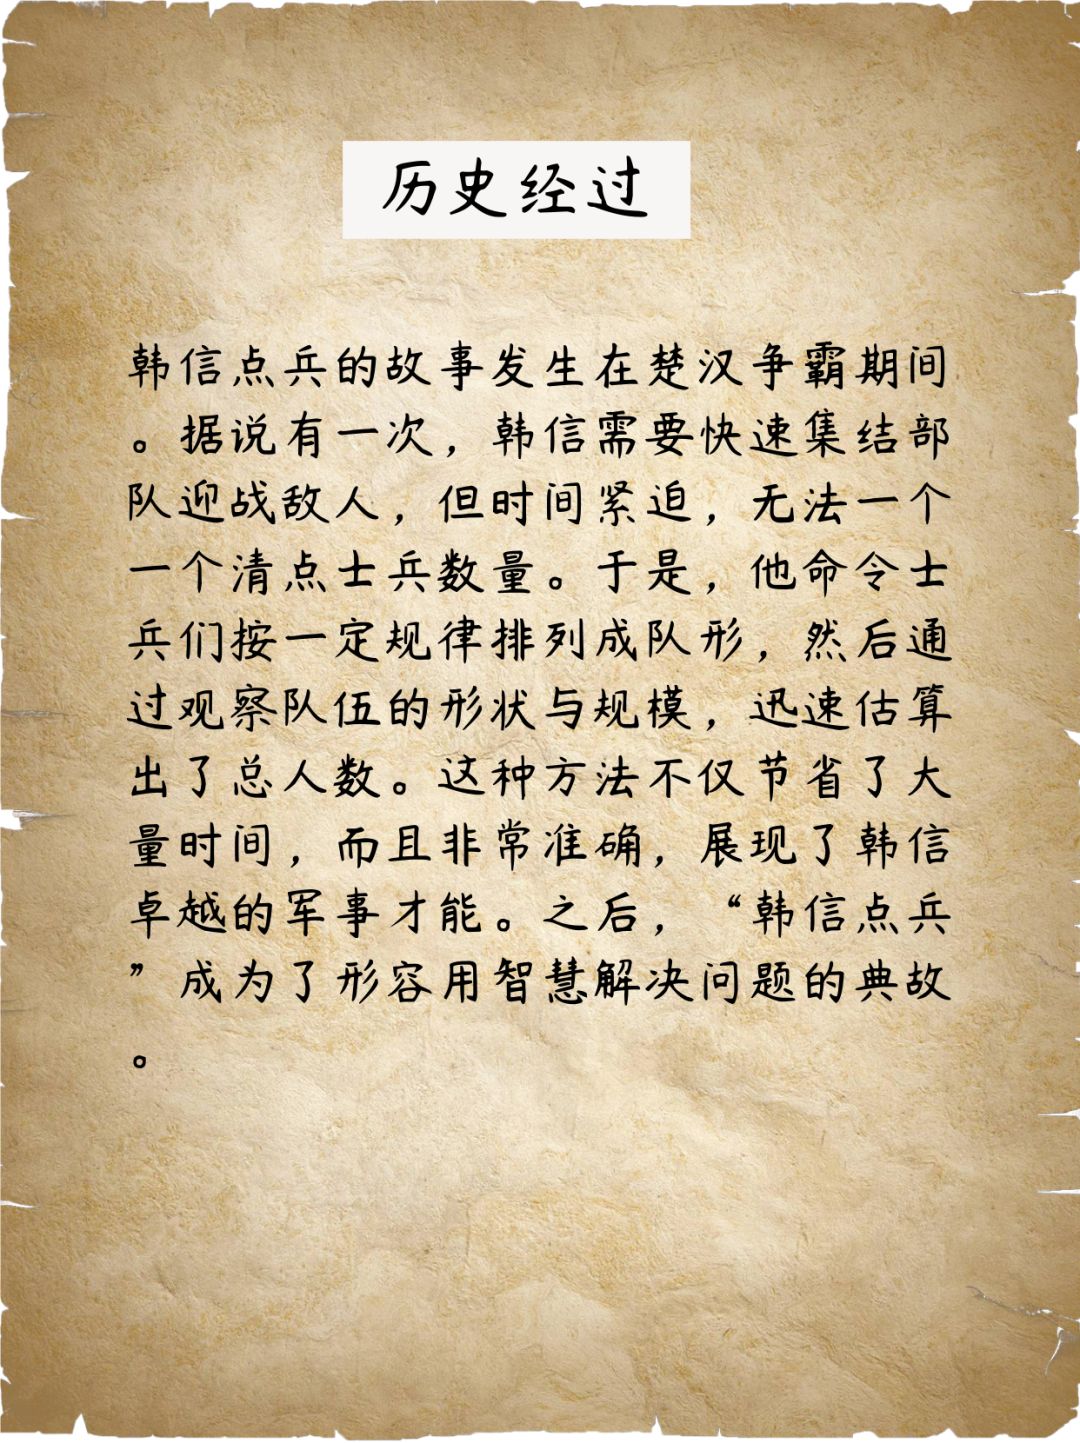 历史经过
韩信点兵的故事发生在楚汉争霸期间
。据说有一次，韩信需要快速集结部
队迎战敌人，但时间紧迫，无法一个
一个清点士兵数量。于是，他命令士
兵们按一定规律排列成队形，然后通
过观察队伍的形状与规模，迅速估算
出了总人数。这种方法不仅节省了大
量时间，而且非常准确，展现了韩信
卓越的军事才能。之后，“韩信点兵
”成为了形容用智慧解决问题的典故
。